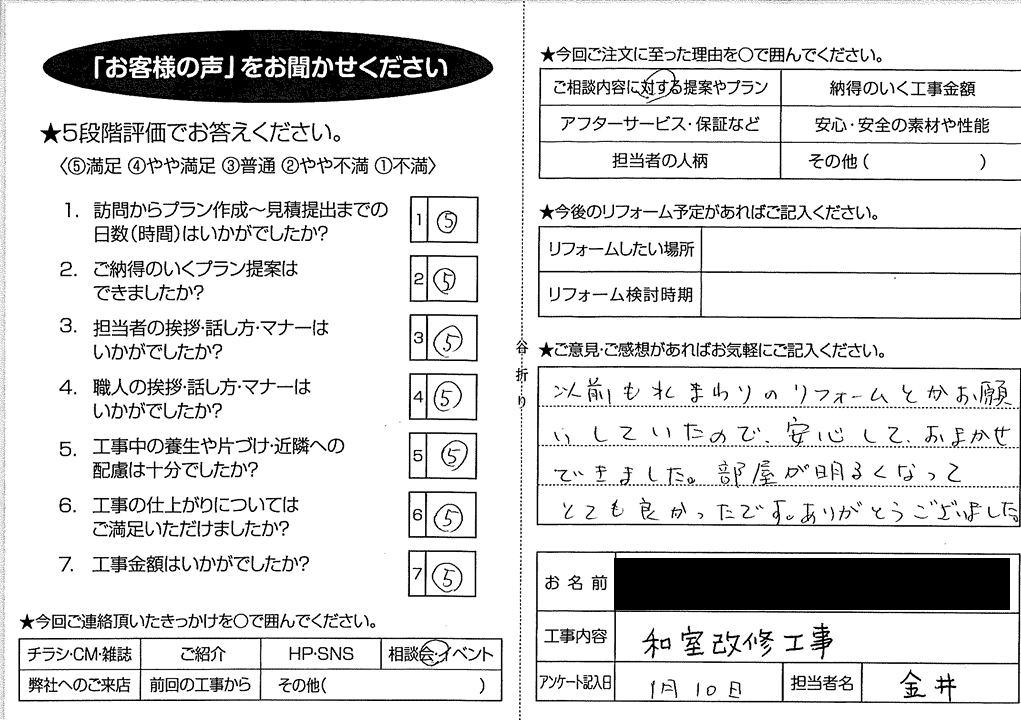 「お客様の声」をお聞かせください
★5段階評価でお答えください。
〈⑤満足 ④やや満足 ③普通 ②やや不満 ①不満〉
1. 訪問からプラン作成～見積提出までの
日数(時間)はいかがでしたか?
1 ⑤
2. ご納得のいくプラン提案は
できましたか?
2 ⑤
3. 担当者の挨拶・話し方・マナーは
いかがでしたか?
3 ⑤
4. 職人の挨拶・話し方・マナーは
いかがでしたか?
4 ⑤
5. 工事中の養生や片づけ・近隣への
配慮は十分でしたか?
5 ⑤
6. 工事の仕上がりについては
ご満足いただけましたか?
6 ⑤
7. 工事金額はいかがでしたか?
7 ⑤
★今回ご連絡頂いたきっかけを〇で囲んでください。
チラシ・CM・雑誌 ご紹介 HP・SNS 相談会・イベント
弊社へのご来店 前回の工事から その他( )
谷折り
★今回ご注文に至った理由を〇で囲んでください。
ご相談内容に対する提案やプラン 納得のいく工事金額
アフターサービス・保証など 安心・安全の素材や性能
担当者の人柄 その他( )
★今後のリフォーム予定があればご記入ください。
リフォームしたい場所
リフォーム検討時期
★ご意見・ご感想があればお気軽にご記入ください。
以前も水まわりのリフォームとかお願
いしていたので、安心して、おまかせ
できました。部屋が明るくなって
とても良かったです。ありがとうございました。
お名前
工事内容 和室改修工事
アンケート記入日 1月10日 担当者名 金井